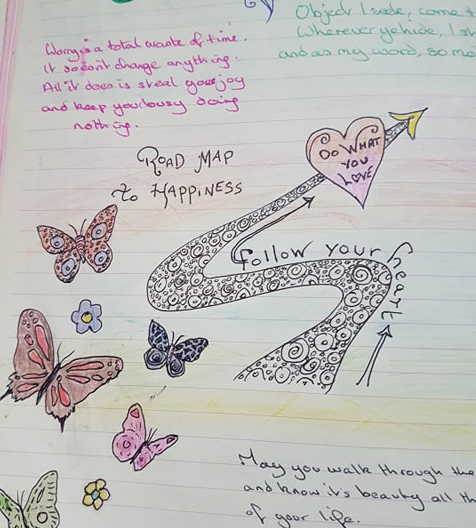 Worry is a total waste of time.
It doesn't change anything.
All it does is steal your joy
and keep you busy doing
nothing.
Object I
come
Wherever ye hide, I
and as my word, so mo
ROAD MAP
to HAPPINESS
DO WHAT
YOU
LOVE
Follow your heart
May you walk through the
and know it's beauty all th
of your life.